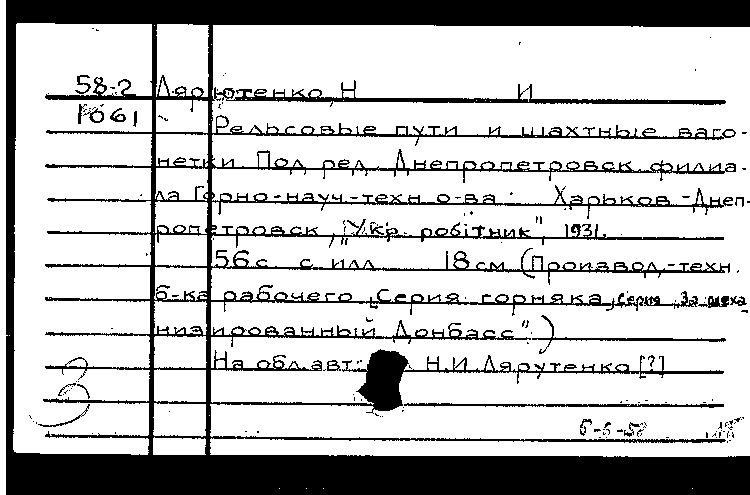 58-2 Лярютенко, Н И
1061 Рельсовые пути и шахтные ваго-
нетки Под ред. Днепропетровск. филиа-
ла Горно-науч.-техн о-ва. Харьков-Днеп-
ропетровск, "Укр. робітник", 1931.
56 с. с илл 18 см (Производ.-техн.
б-ка рабочего Серия горняка, серия "За меха
низированный Донбасс")
На обл. авт: Н.И. Лярутенко [?]
3